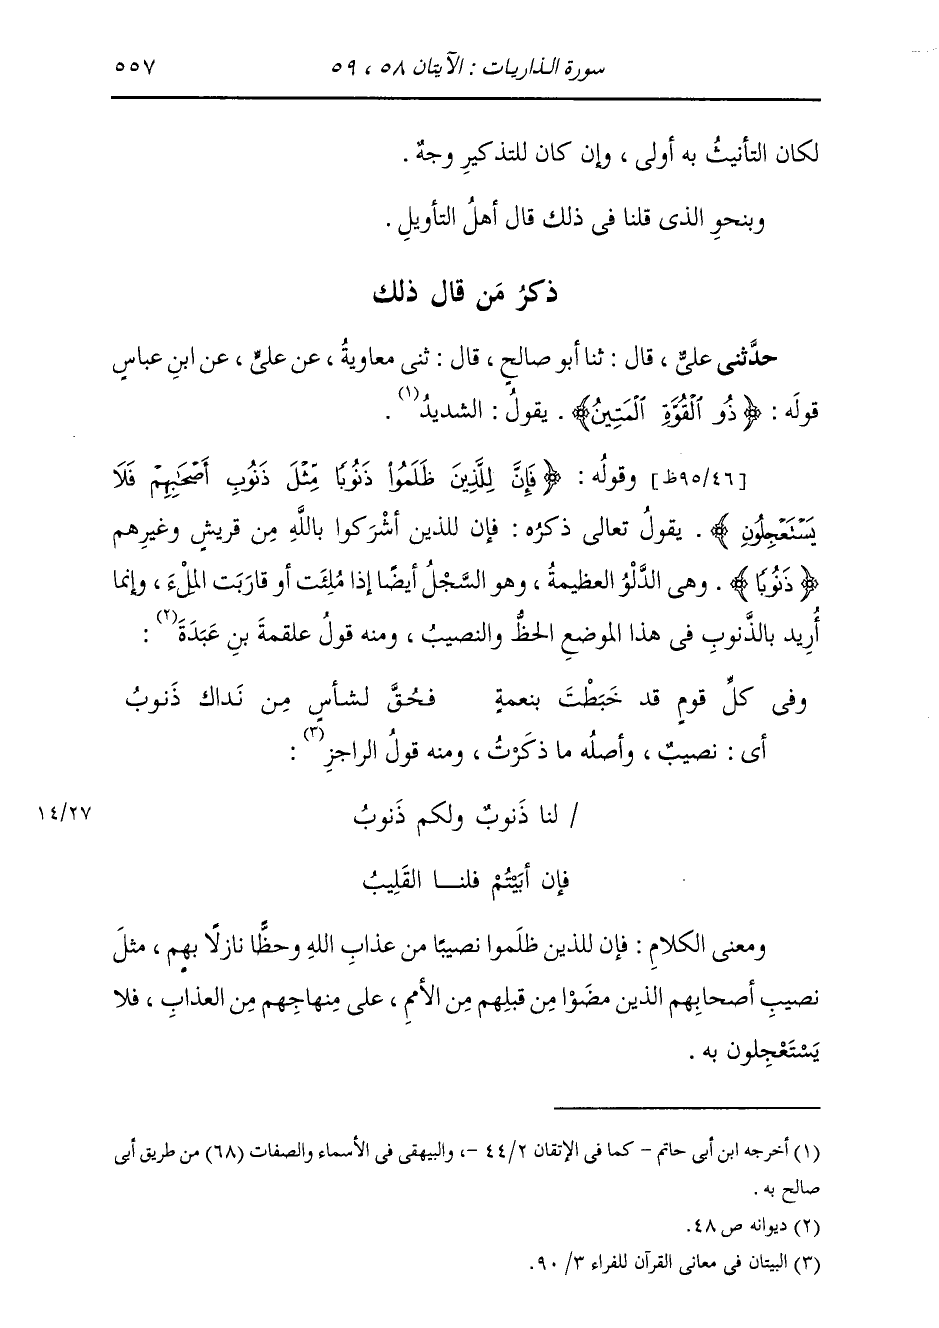 سورة الذاريات : الآيتان ٥٨ ، ٥٩
٥٥٧
لكان التأنيثُ به أولى ، وإن كان للتذكيرِ وجهٌ .
وبنحوِ الذى قلنا فى ذلك قال أهلُ التأويلِ .
ذكرُ مَن قال ذلك
حدَّثنى علىٌّ ، قال : ثنا أبو صالحٍ ، قال : ثنى معاويةُ ، عن علىٍّ ، عن ابنِ عباسٍ
قولَه : ﴿ ذُو ٱلْقُوَّةِ ٱلْمَتِينُ ﴾ . يقولُ : الشديدُ(١) .
[٩٥/٤٦ظ] وقولُه : ﴿ فَإِنَّ لِلَّذِينَ ظَلَمُوا۟ ذَنُوبًا مِّثْلَ ذَنُوبِ أَصْحَٰبِهِمْ فَلَا
يَسْتَعْجِلُونِ ﴾ . يقولُ تعالى ذكرُه : فإن للذين أشْرَكوا باللَّهِ مِن قريشٍ وغيرِهم
﴿ ذَنُوبًا ﴾ . وهى الدَّلْوُ العظيمةُ ، وهو السَّجْلُ أيضًا إذا مُلِئَت أو قارَبَت المِلْءَ ، وإنما
أُرِيد بالذَّنوبِ فى هذا الموضعِ الحظُّ والنصيبُ ، ومنه قولُ علقمةَ بنِ عَبَدَةَ(٢) :
وفى كلِّ قومٍ قد خَبَطْتَ بنعمةٍ فحُقَّ لشأسٍ مِن نَداك ذَنوبُ
أى : نصيبٌ ، وأصلُه ما ذكَرْتُ ، ومنه قولُ الراجزِ(٣) :
/ لنا ذَنوبٌ ولكم ذَنوبُ
١٤/٢٧
فإن أبَيْتُمْ فلنـا القَلِيبُ
ومعنى الكلامِ : فإن للذين ظلَموا نصيبًا من عذابِ اللهِ وحظًّا نازلًا بهم ، مثلَ
نصيبِ أصحابِهم الذين مضَوْا مِن قبلِهم مِن الأممِ ، على مِنهاجِهم مِن العذابِ ، فلا
يَسْتَعْجِلون به .
(١) أخرجه ابن أبى حاتم - كما فى الإتقان ٤٤/٢ -، والبيهقى فى الأسماء والصفات (٦٨) من طريق أبى
صالح به .
(٢) ديوانه ص ٤٨.
(٣) البيتان فى معانى القرآن للفراء ٣/ ٩٠.